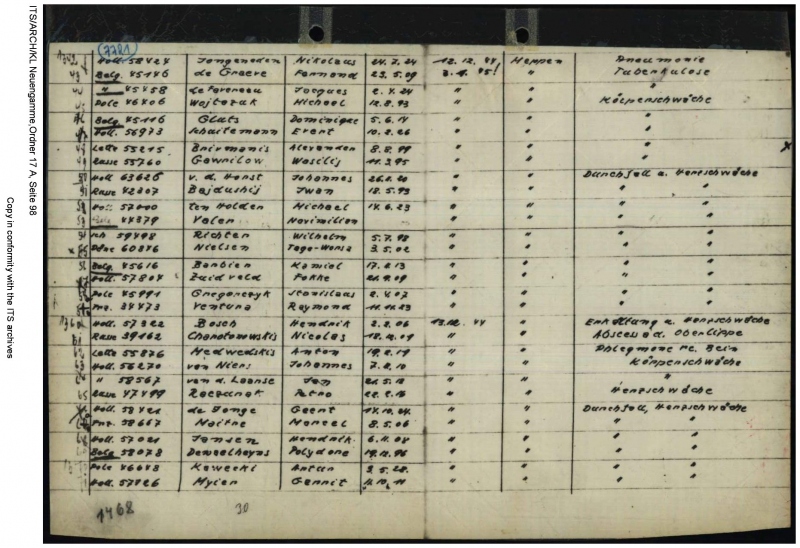 ITS/ARCH/KL Neuengamme,Ordner 17 A, Seite 98
Copy in conformity with the ITS archives
(7781)
Holl. 58424 Jongeneden Nikolaus 24.7.24 12.12.44 Meppen Pneumonie
43 Belg. 45146 de Graeve Fernand 23.5.09 " Tuberkulose
" 45458 Jacques 2.4.24 " "
Pole 46406 Wojtczak Michael 12.8.93 " " Körperschwäche
46 Belg. 45116 Gluts Dominique 5.6.14 " " "
Holl. 56973 Schuitemann Evert 10.2.26 " " "
Lette 55215 Brirmanis Alexander 8.8.99 " " "
Russe 55760 Gawrilow Wasilij 11.3.95 " " "
50 Holl 63626 v. d. Horst Johannes 26.2.20 " " Durchfall u. Herzschwäche
51 Russe 42207 Bajdushij Jwan 18.5.93 " " " "
52 Holl. 57000 ten Holden Michael 14.6.23 " " " "
53 44379 Valer Maximilien " " " "
54 59498 Richter Wilhelm 5.7.98 " " " "
Däne 60846 Nielsen Tage-Worsa 3.5.02 " " " "
Belg. 45616 Barbier Kamiel 17.2.13 " " " "
Holl. 57804 Zuidveld Fokke " " " "
Pole 45991 Gregorczyk Stanislaus 2.4.07 " " " "
Frz. 34473 Ventura Raymond 11.11.23 " " " "
Holl. 57322 Bosch Hendrik 2.2.06 13.12.44 " Erkältung u. Herzschwäche
61 Russe 39162 Nicolas 18.12.09 " " Abscess d. Oberlippe
Lette 55876 Medwedskis Anton 19.2.19 " " Phlegmone re. Bein
63 Holl. 56270 van Niers Johannes 7.2.10 " " Körperschwäche
64 " 58567 van d. Laanse Jan 21.5.18 " " "
65 Russe 47499 Petro 22.2.16 " " Herzschwäche
Holl. 58421 de Jonge Geert 14.10.24. " " Durchfall, Herzschwäche
Frz. 38667 Maitre Marcel 8.5.06 " " " "
Holl. 57021 Jansen Hendrik. 6.11.08 " " " "
Belg 58078 Polydore 19.12.96 " " " "
Pole 46048 Kawecki Antan 9.5.28. " " " "
Holl. 57426 Myier Gerrit 11.10.11 " " " "
1468
30